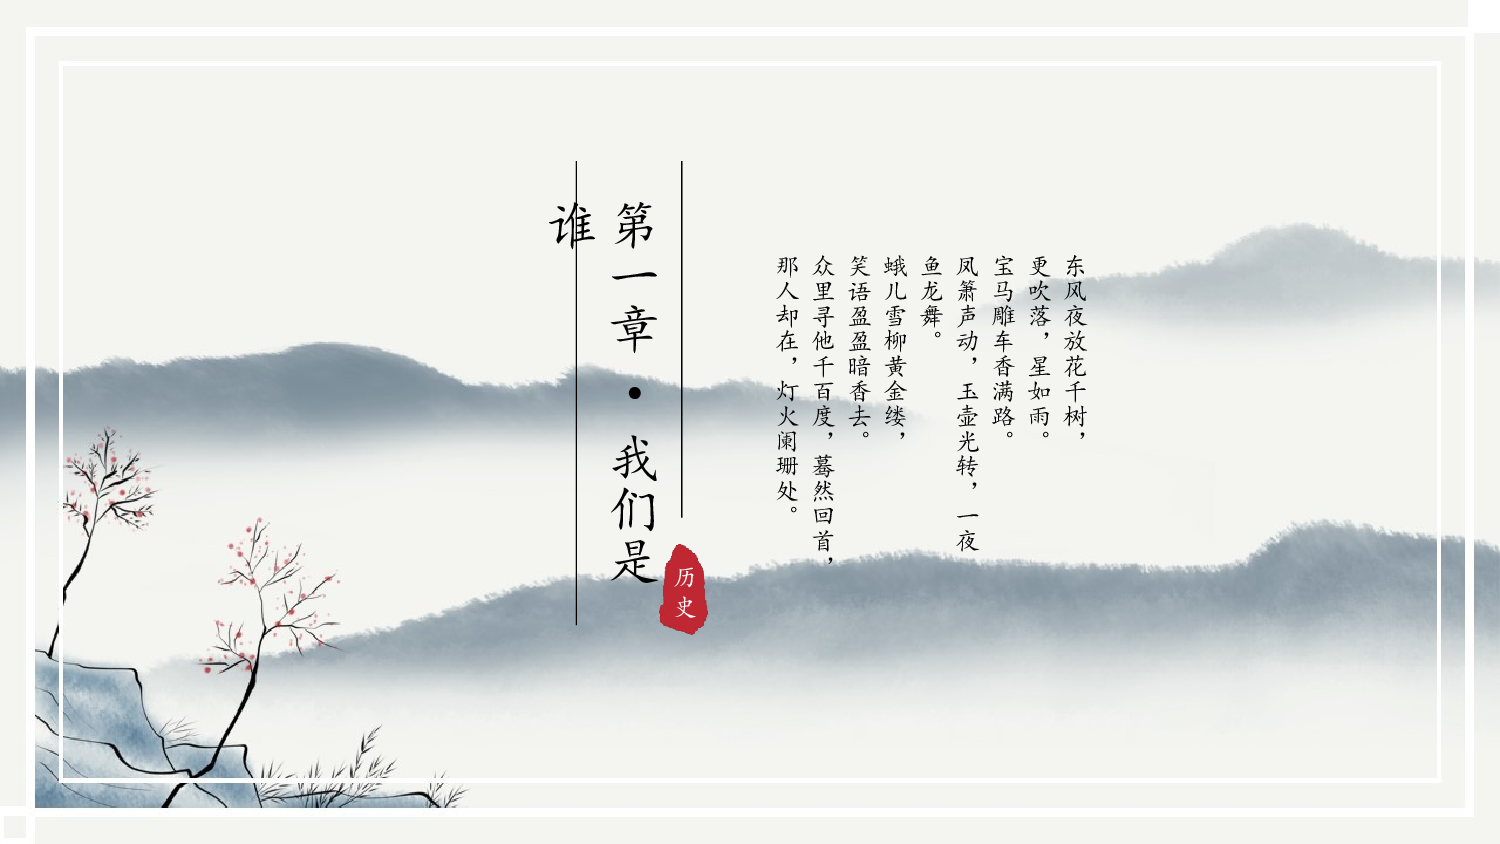 第一章·我们是
谁
历史
东风夜放花千树，
更吹落，星如雨。
宝马雕车香满路。
凤箫声动，玉壶光转，一夜
鱼龙舞。
蛾儿雪柳黄金缕，
笑语盈盈暗香去。
众里寻他千百度，蓦然回首，
那人却在，灯火阑珊处。